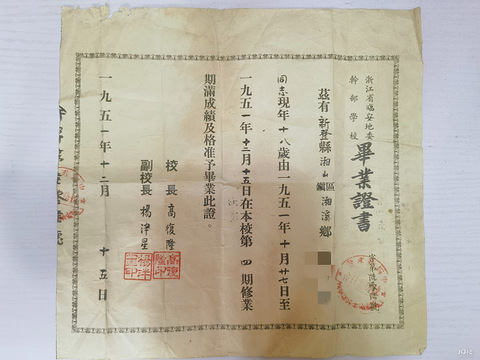 浙江省臨安地委
幹部學校
畢業證書
茲有新登縣湘山區湘溪鄉
鎮
同志現年十八歲由一九五一年十月廿七日至
一九五一年十二月十五日在本校第四期修業
期滿成績及格准予畢業此證。
校長高復隆
副校長楊
一九五一年十二月十五日